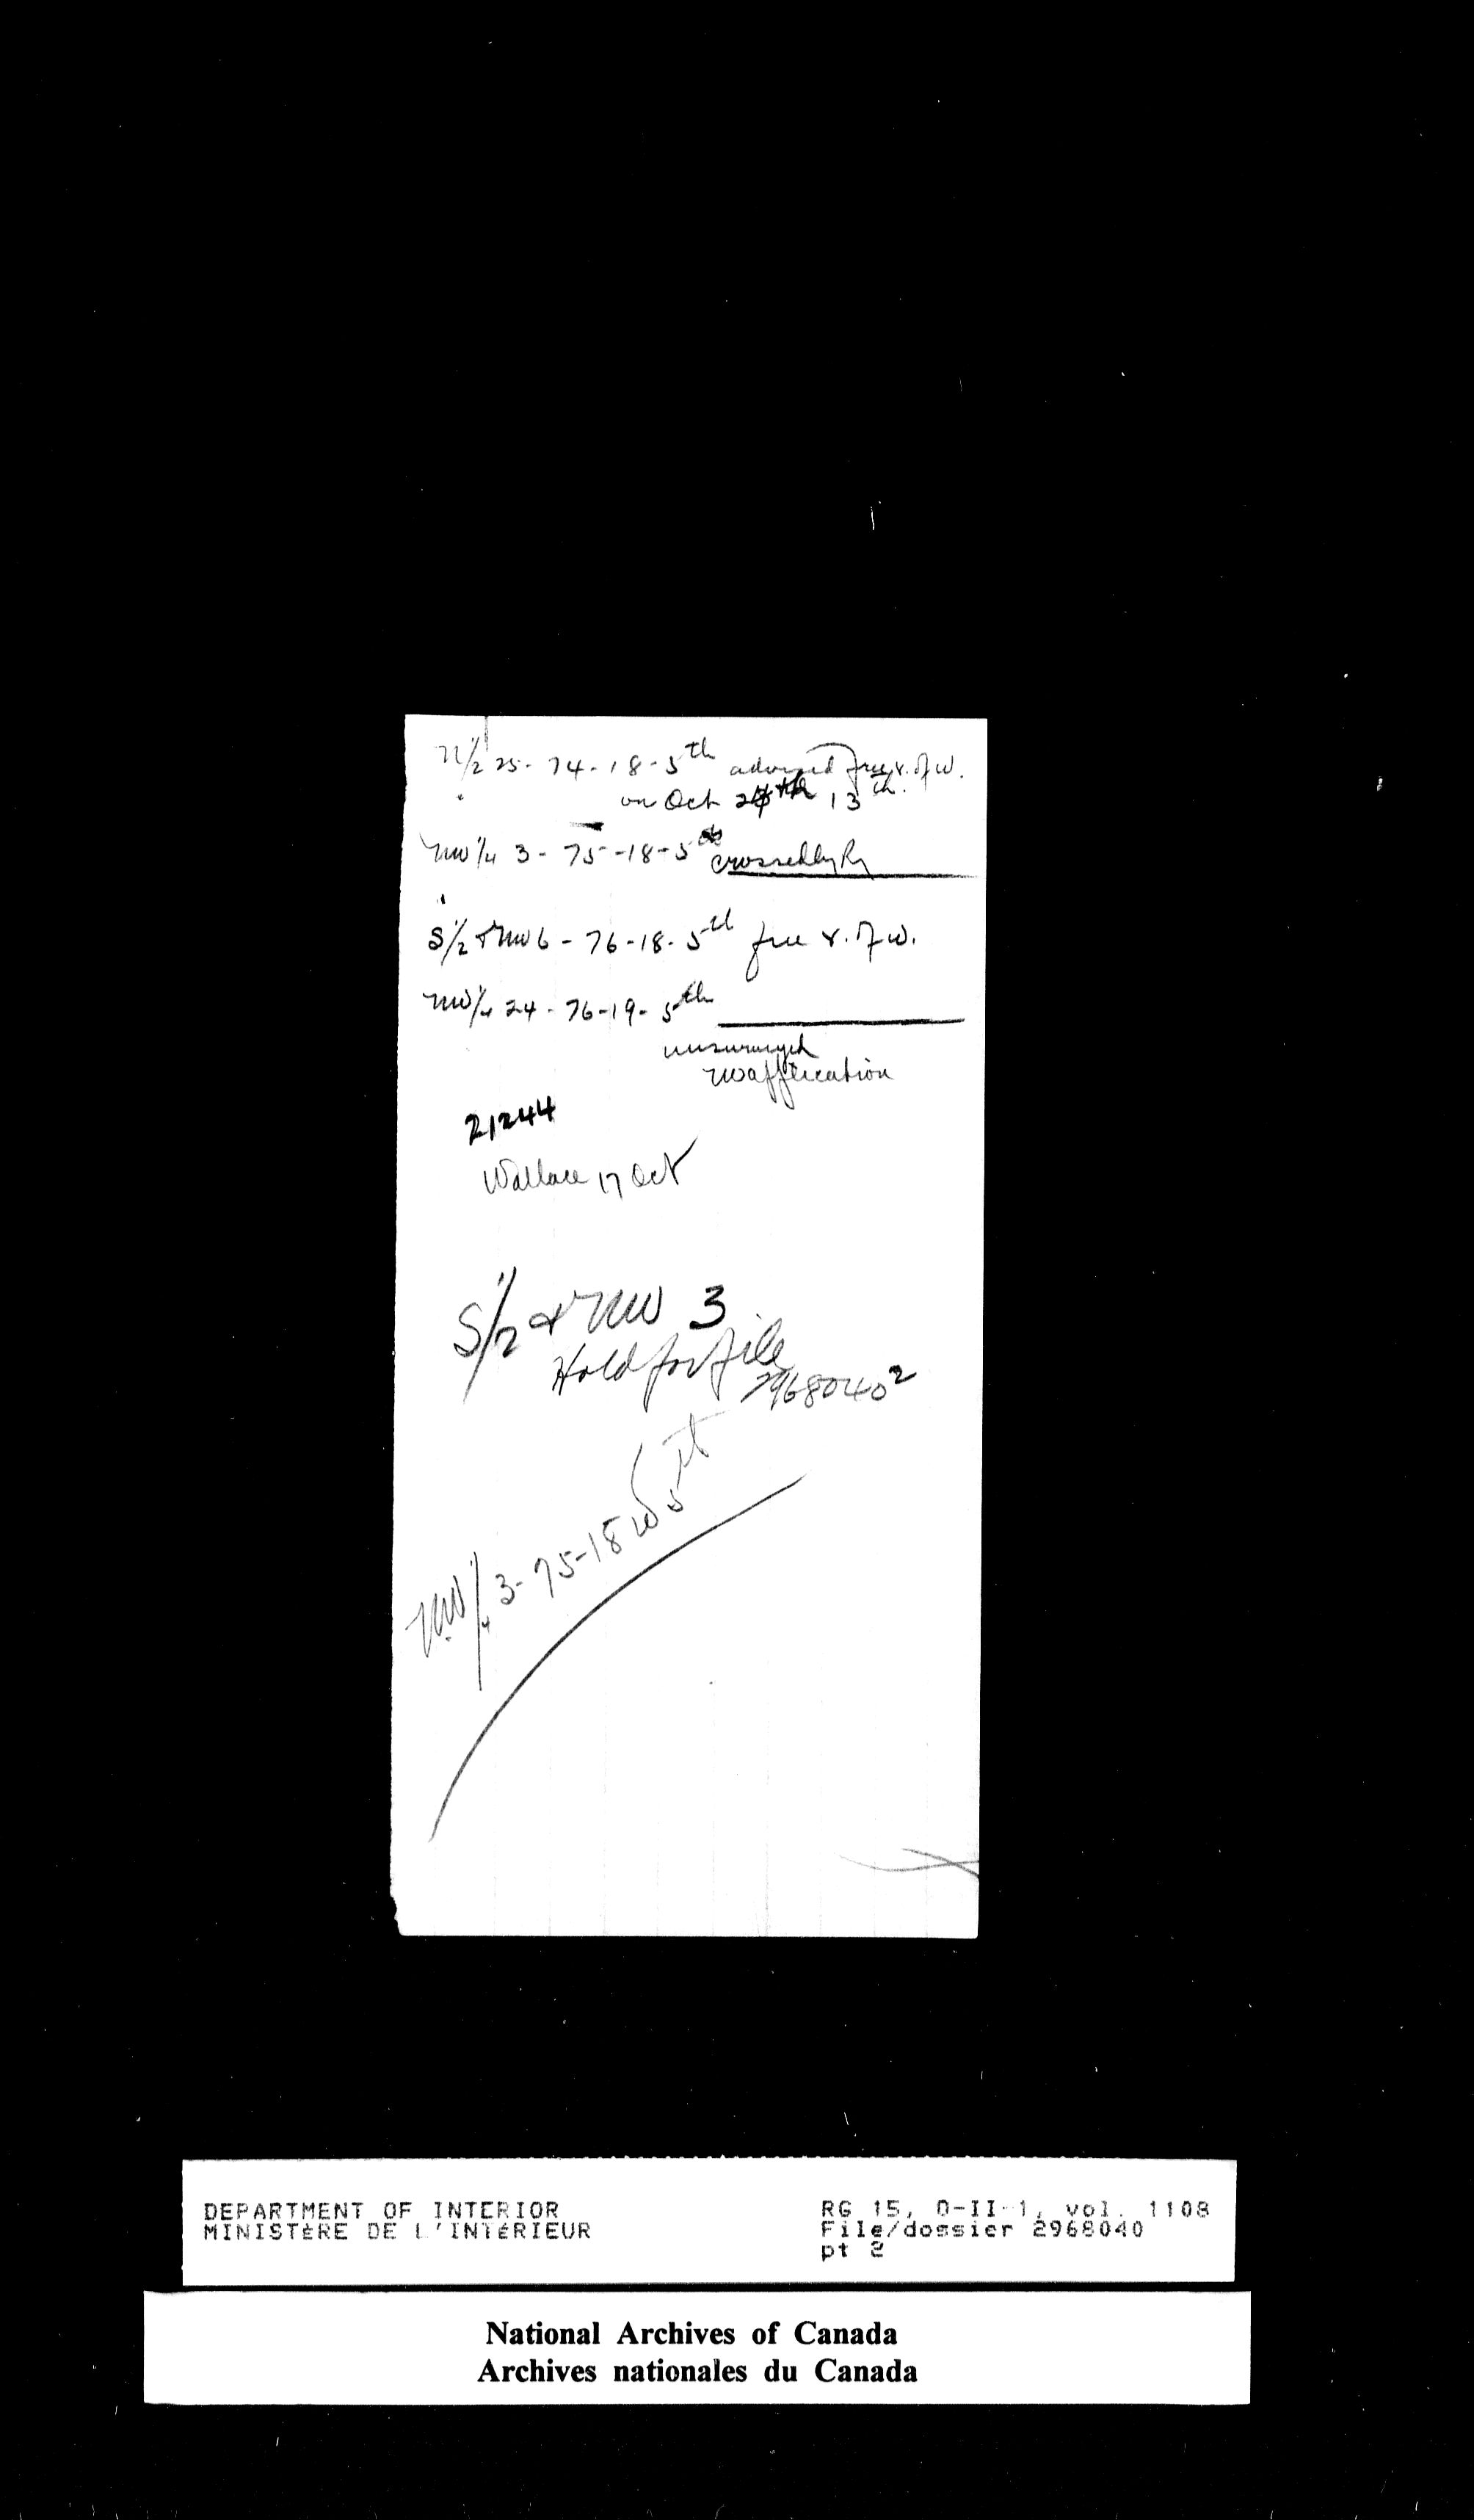 N½ 25-74-18-5th advised free r. of w.
on Oct 13th.
NW¼ 3-75-18-5th crossed by Ry
S½ & NW 6-76-18-5th free r. of w.
NW¼ 24-76-19-5th
unsurveyed
no application
21244
Wallace 17 Oct
S½ & NW 3
Hold for file
2968040 2
NW¼ 3-75-18 W 5th
DEPARTMENT OF INTERIOR
MINISTÈRE DE L'INTÉRIEUR
RG 15, D-II-1, vol. 1108
File/dossier 2968040
pt 2
National Archives of Canada
Archives nationales du Canada